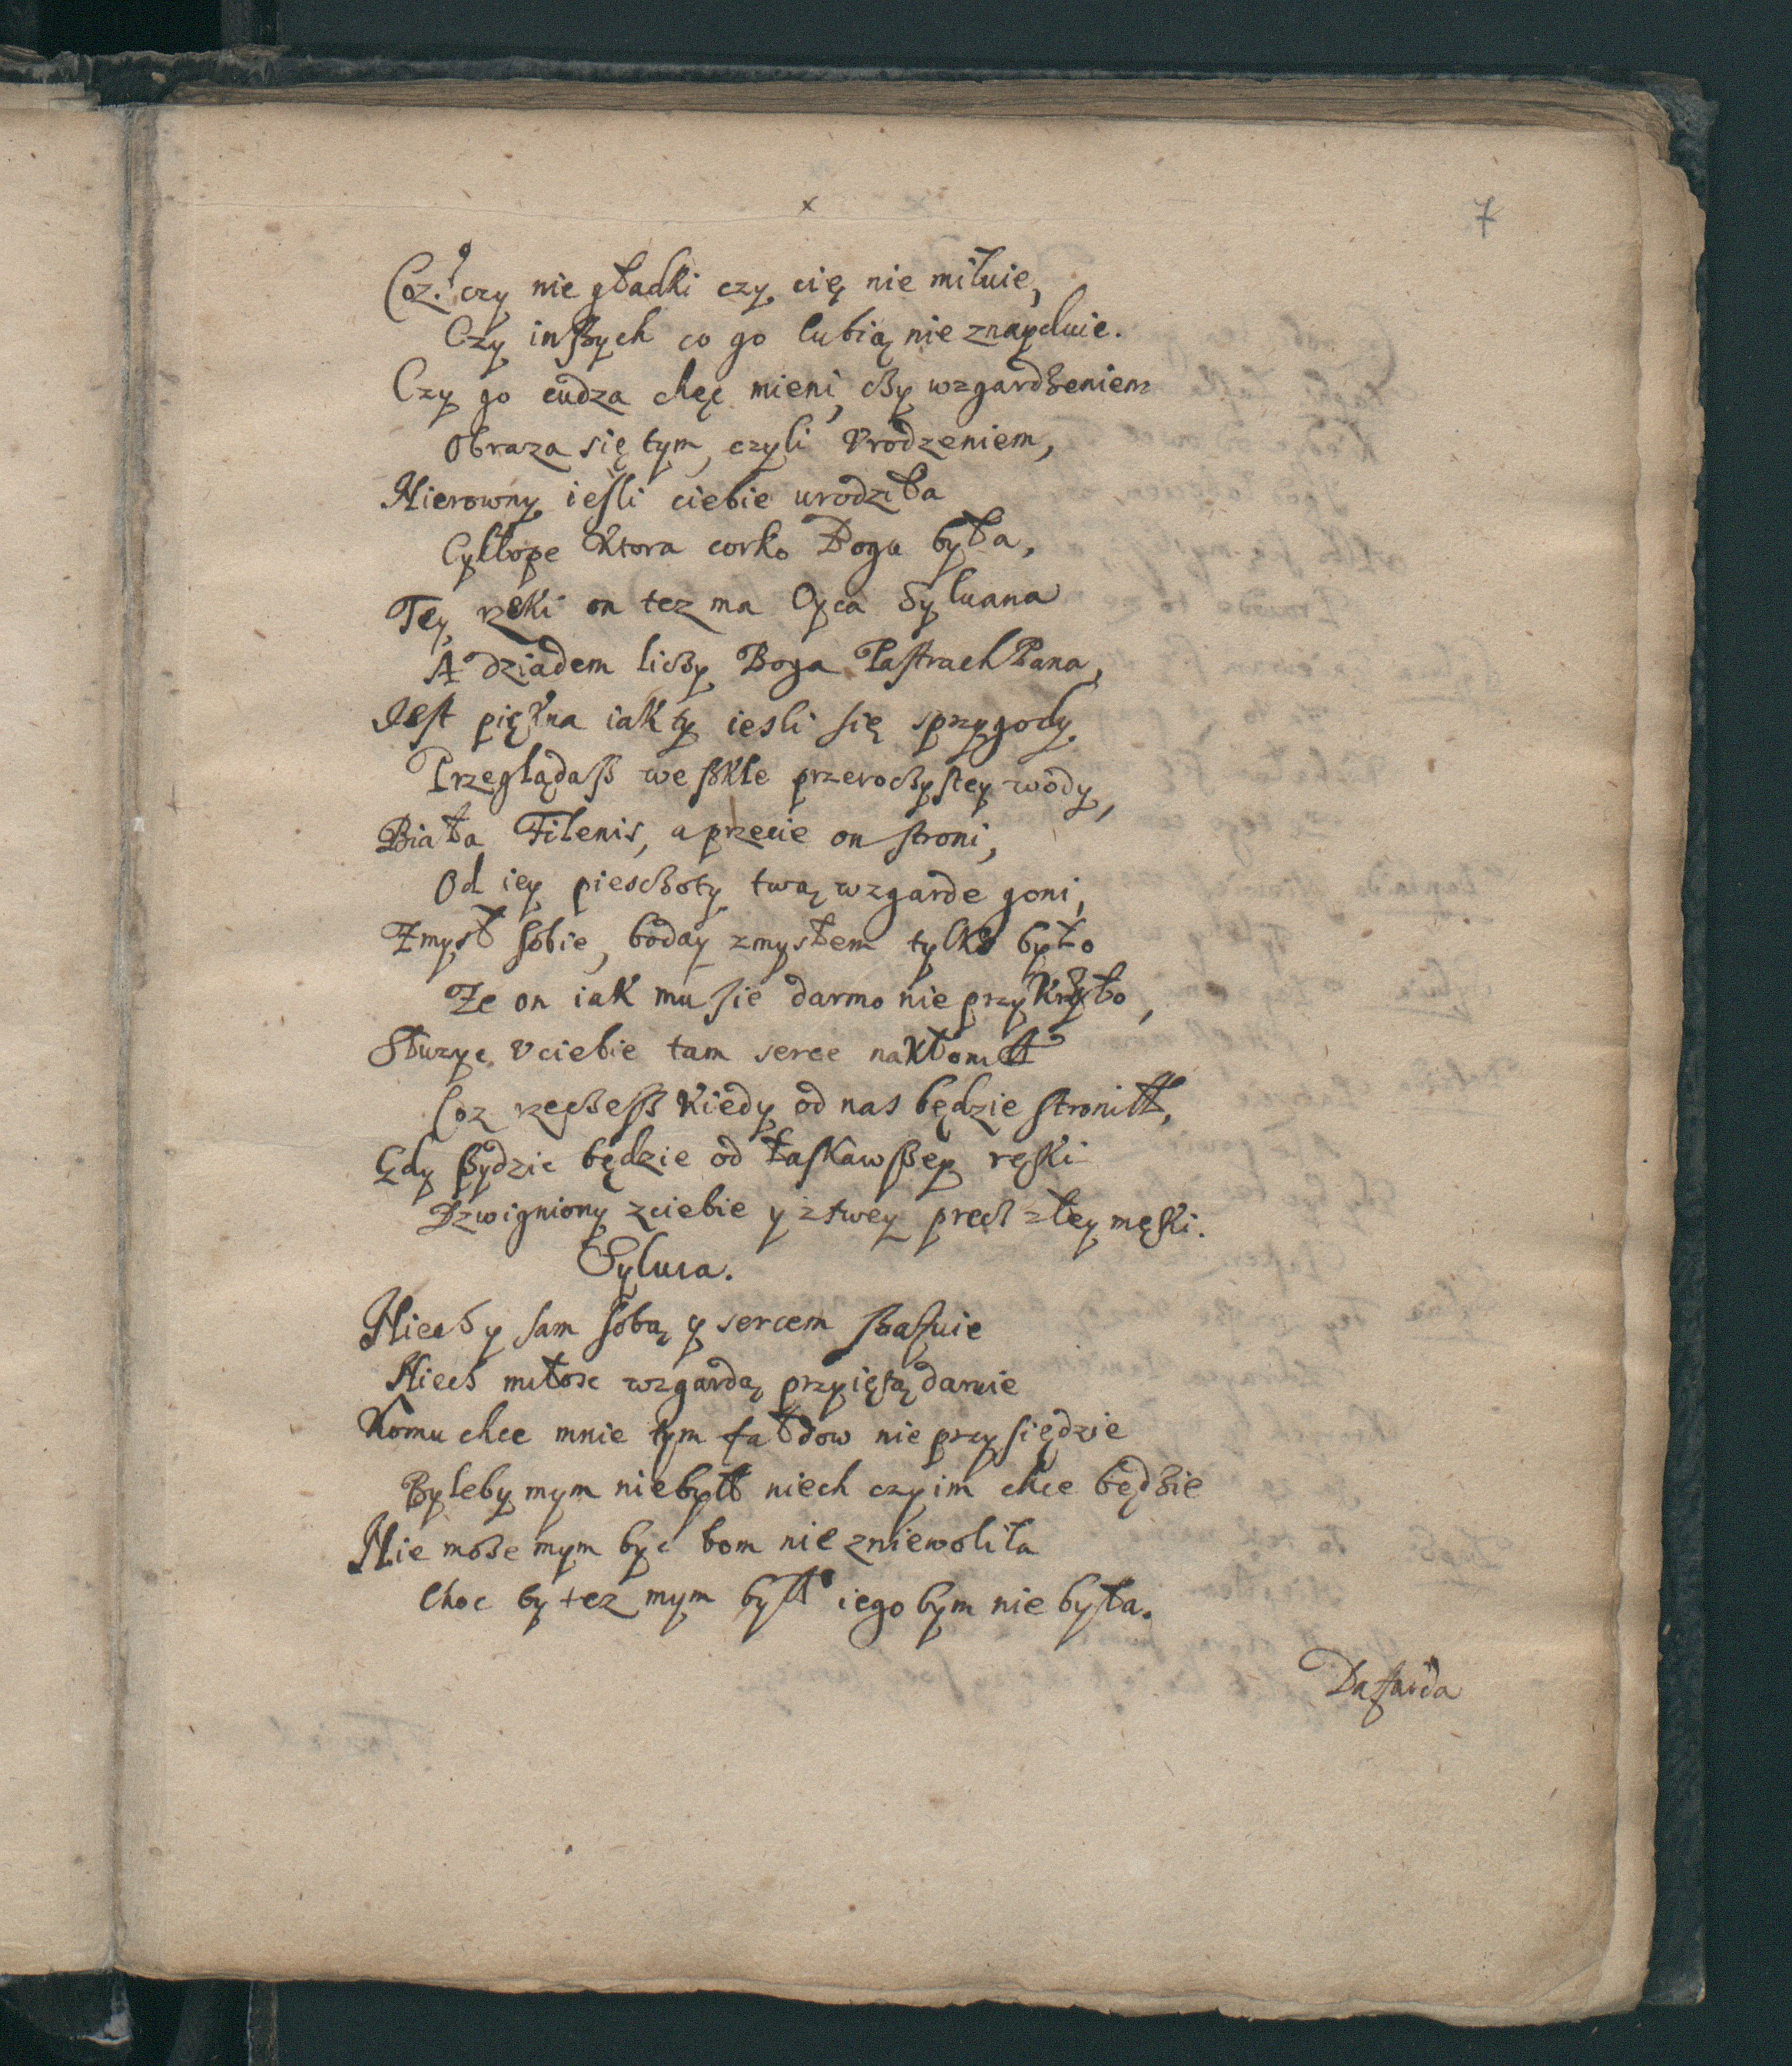 x
7
Coz? czy nie gładki czy cię nie miłuie,
Czy inßych co go lubią nie znayduie.
Czy go cudza chęć mieni, czy wzgardzeniem
Obraza się tym, czyli Vrodzeniem,
Nierowny, ieſli ciebie urodziła
Cyklope Ktora corko Boga była,
Tey rzeki on tez ma Oyca Syluana
A dziadem liczy Boga Paſtrach Pana,
Jeſt piękna iak ty iesli ſię sprzygody
Przeglądaß we ßkle przeroczyſtey wody,
Biała Filenis, a przecie on ſtroni,
Od iey pieschoty twą wzgarde goni,
Zmysł ſobie, boday zmysłem tylko było
Ze on iak mu ſie darmo nie przykrzyło,
Służyc v ciebie tam serce nakłonił
Coz rzeczeß Kiedy od nas będzie ſtronił,
Gdy ßydzic będzie od łaſkawßey ręki
Dzwigniony z ciebie y z twey precz złey męki.
Syluia.
Niech y ſam ſobą y sercem ßafuie
Niech miłosc wzgardą przyiętą daruie
Komu chce mnie tym fałdow nie przysiędzie
Byleby mym niebył niech czyim chce będzie
Nie może mym byc bom nie zniewoliła
Choc by tez mym był iego bym nie była.
Dafnida